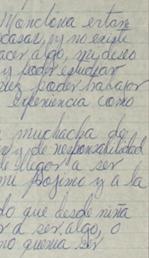 Monclova estan
casas, y no existe
acer algo, mi deseo
y poder estudiar
poder trabajar
experiencia como
muchacha de
y de responsabilidad
llegar a ser
mi projimo y a la
do que desde niña
a ser algo, o
no queria ser